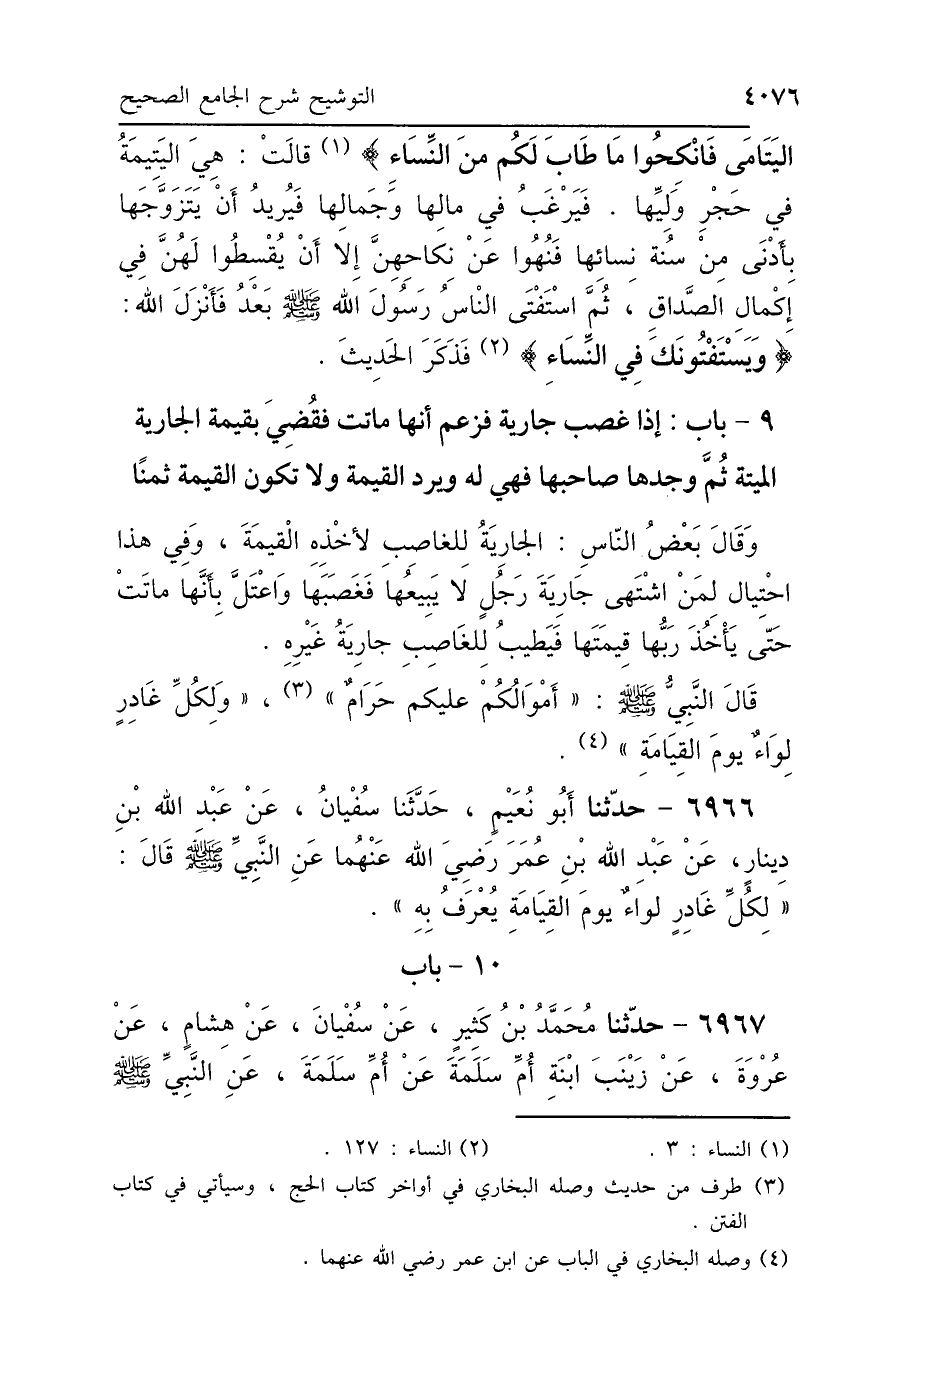 ٤٠٧٦ التوشيح شرح الجامع الصحيح
اليَتَامَى فَانْكِحُوا مَا طَابَ لَكُم منَ النِّسَاءِ ﴾ (١) قالَتْ : هِيَ اليَتِيمَةُ
في حَجْرِ وَلَيِّها . فَيَرْغَبُ في مالِها وَجَمالِها فَيُرِيدُ أَنْ يَتَزَوَّجَها
بِأَدْنَى مِنْ سُنة نِسائِها فَنُهُوا عَنْ نكاحِهِنَّ إلا أَنْ يُقْسِطُوا لَهُنَّ في
إِكْمالِ الصَّداقِ ، ثُمَّ اسْتَفْتَى النْاسُ رَسُولَ الله ﷺ بَعْدُ فَأَنْزَلَ الله :
﴿ وَيَسْتَفْتُونَكَ فِي النِّسَاءِ ﴾ (٢) فَذَكَرَ الحَدِيثَ .
٩ - باب : إذا غصب جارية فزعم أنها ماتت فقُضيَ بقيمة الجارية
الميتة ثُمَّ وجدها صاحبها فهي له ويرد القيمة ولا تكون القيمة ثمنًا
وَقَالَ بَعْضُ النّاسِ : الجارِيَةُ للغاصِبِ لأخْذِهِ الْقيمَةَ ، وَفِي هذا
احْتِيال لِمَنْ اشْتَهى جَارِيَةَ رَجُلٍ لا يَبِيعُها فَغَصَبَهَا وَاعْتَلَّ بِأَنَّها ماتَتْ
حَتّى يَأْخُذَ رَبُّها قِيمَتَها فَيَطيبُ للغَاصِبِ جارِيَةُ غَيْرِهِ .
قَالَ النَّبِيُّ ﷺ : « أَمْوَالُكُمْ عليكم حَرَامٌ » (٣) ، « وَلِكُلِّ غَادِرٍ
لِوَاءٌ يومَ القِيَامَةِ » (٤) .
٦٩٦٦ - حدّثنا أَبُو نُعَيْمٍ ، حَدَّثَنا سُفْيانُ ، عَنْ عَبْدِ الله بْنِ
دِينارٍ، عَنْ عَبْدِ الله بْنِ عُمَرَ رَضِيَ الله عَنْهُما عَنِ النَّبِيِّ ﷺ قَالَ :
« لِكُلِّ غَادِرٍ لواءٌ يومَ القِيَامَةِ يُعْرَفُ بِهِ » .
١٠ - باب
٦٩٦٧ - حدّثنا مُحَمَّدُ بْنُ كَثِيرٍ ، عَنْ سُفْيانَ ، عَنْ هِشامٍ ، عَنْ
عُرْوَةَ ، عَنْ زَيْنَبَ ابْنَةِ أُمِّ سَلَمَةَ عَنْ أُمِّ سَلَمَةَ ، عَنِ النَّبِيِّ ﷺ
(١) النساء : ٣ . (٢) النساء : ١٢٧ .
(٣) طرف من حديث وصله البخاري في أواخر كتاب الحج ، وسيأتي في كتاب
الفتن .
(٤) وصله البخاري في الباب عن ابن عمر رضي الله عنهما .